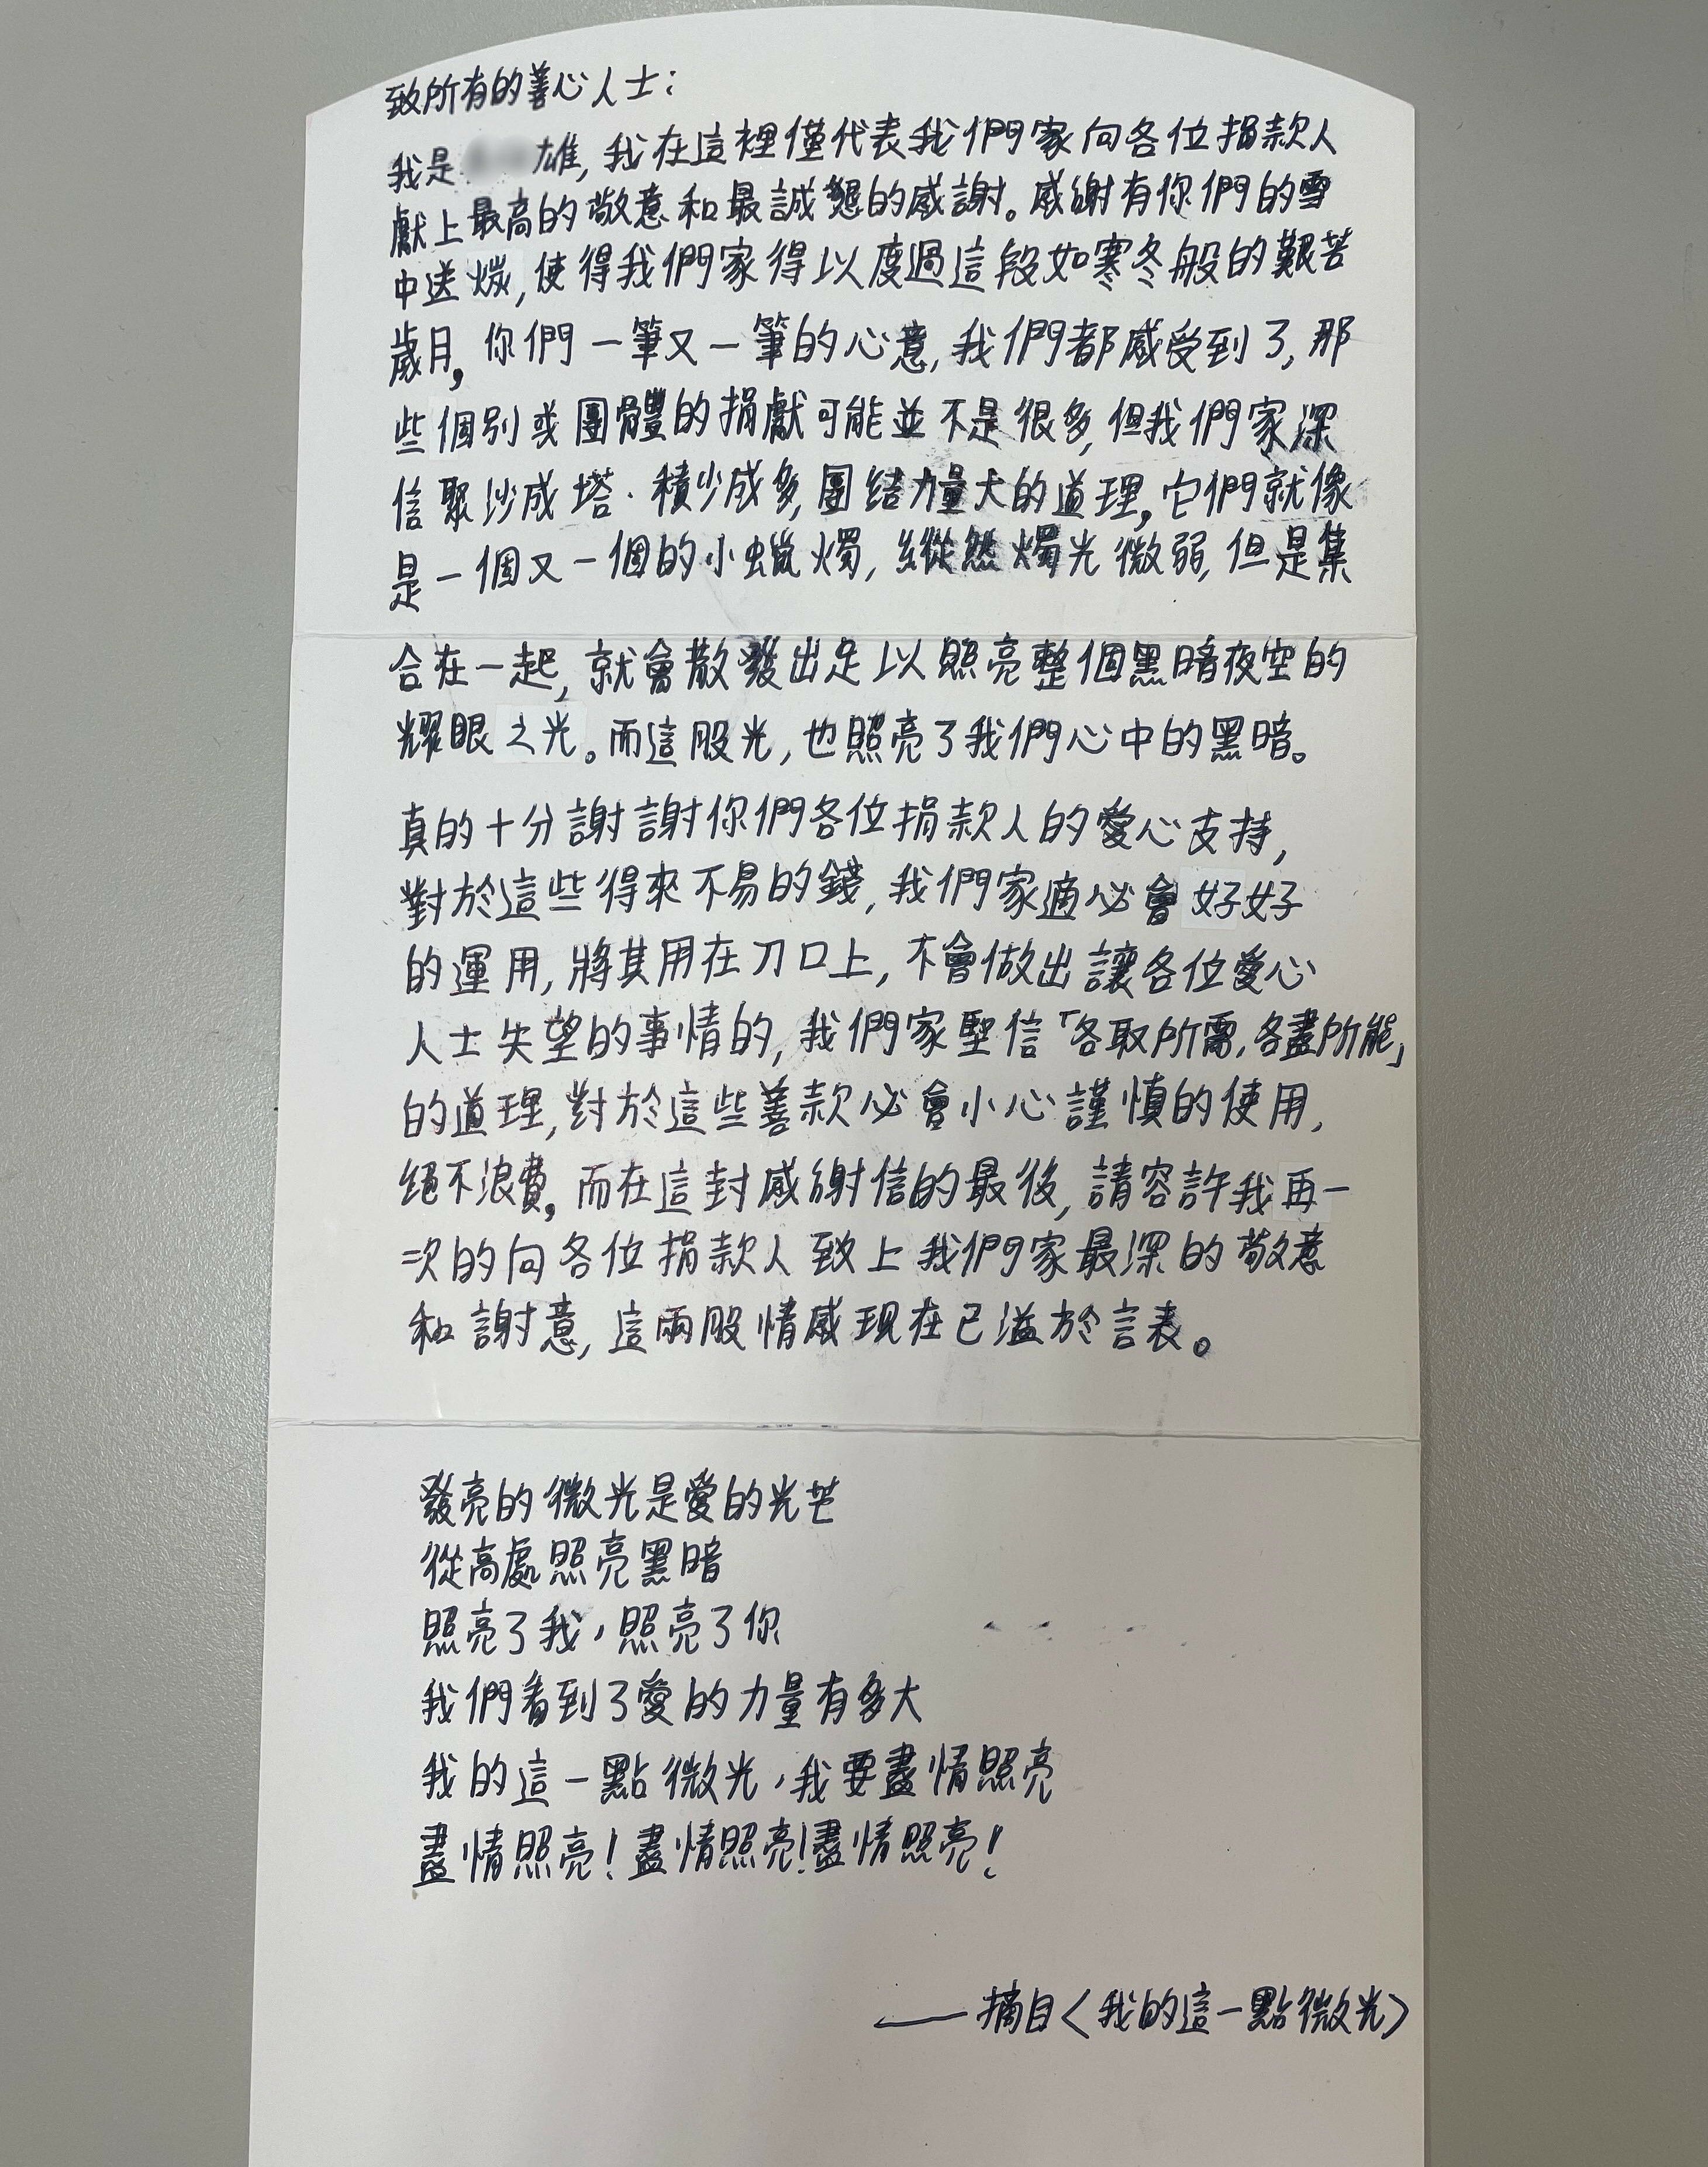 致所有的善心人士：
我是雄, 我在這裡僅代表我們家向各位捐款人
獻上最高的敬意和最誠懇的感謝。感謝有你們的雪
中送炭, 使得我們家得以度過這段如寒冬般的艱苦
歲月, 你們一筆又一筆的心意, 我們都感受到了, 那
些個別或團體的捐獻可能並不是很多, 但我們家深
信聚沙成塔．積少成多, 團結力量大的道理, 它們就像
是一個又一個的小蠟燭, 縱然燭光微弱, 但是集
合在一起, 就會散發出足以照亮整個黑暗夜空的
耀眼之光。而這股光, 也照亮了我們心中的黑暗。
真的十分謝謝你們各位捐款人的愛心支持,
對於這些得來不易的錢, 我們家必會好好
的運用, 將其用在刀口上, 不會做出讓各位愛心
人士失望的事情的, 我們家堅信「各取所需, 各盡所能」
的道理, 對於這些善款必會小心謹慎的使用,
絕不浪費, 而在這封感謝信的最後, 請容許我再一
次的向各位捐款人致上我們家最深的敬意
和謝意, 這兩股情感現在已溢於言表。
發亮的微光是愛的光芒
從高處照亮黑暗
照亮了我，照亮了你
我們看到了愛的力量有多大
我的這一點微光，我要盡情照亮
盡情照亮！盡情照亮！盡情照亮！
——摘自〈我的這一點微光〉